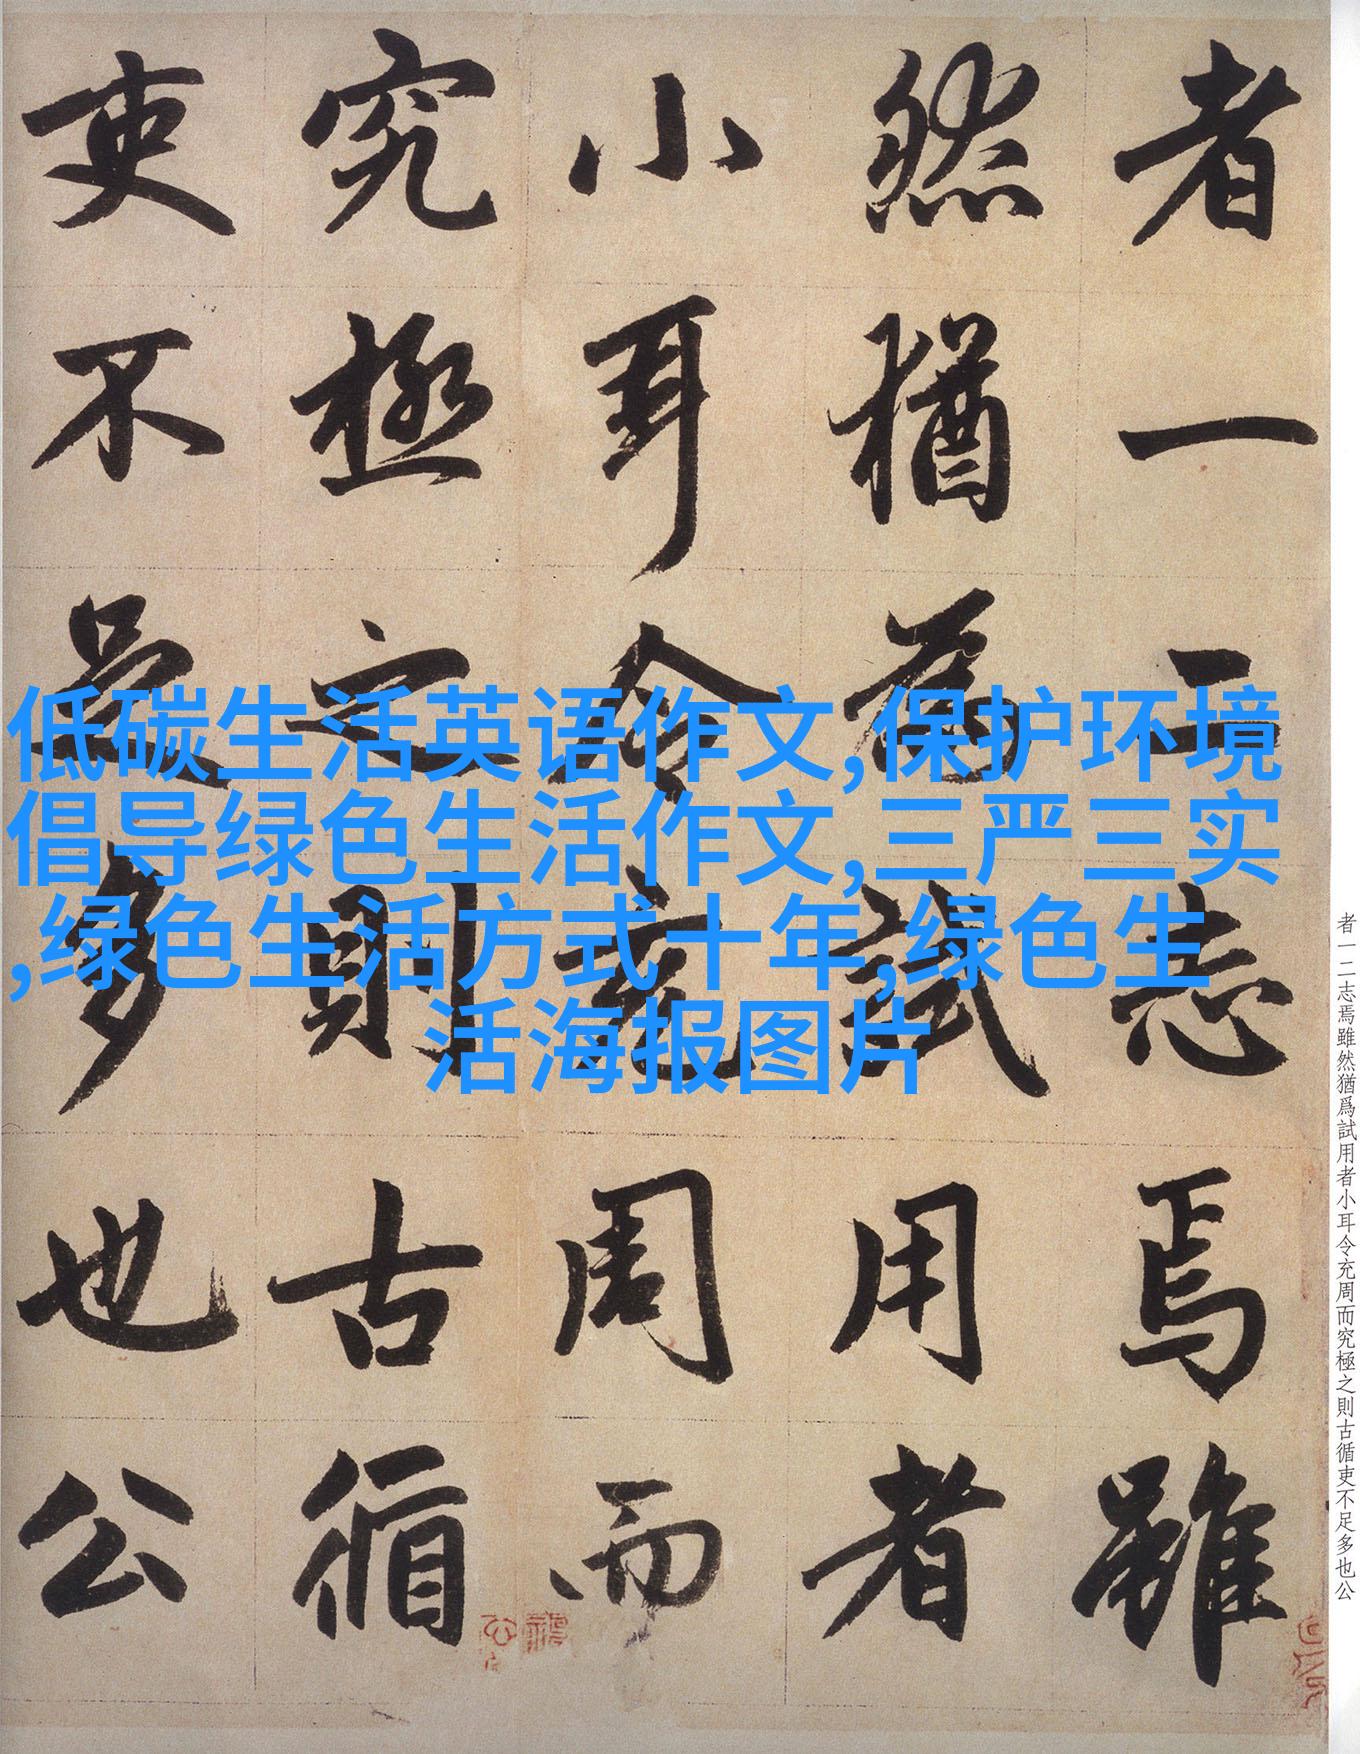 者一二志焉雖
然猶為試用者
小耳令充周而
究極之則古循
吏不足多也公
低碳生活英语作文,保护环境
倡导绿色生活作文,三严三实
,绿色生活方式十年,绿色生
活海报图片
者一二志焉雖然猶爲試用者小耳令充周而究極之則古循吏不足多也公